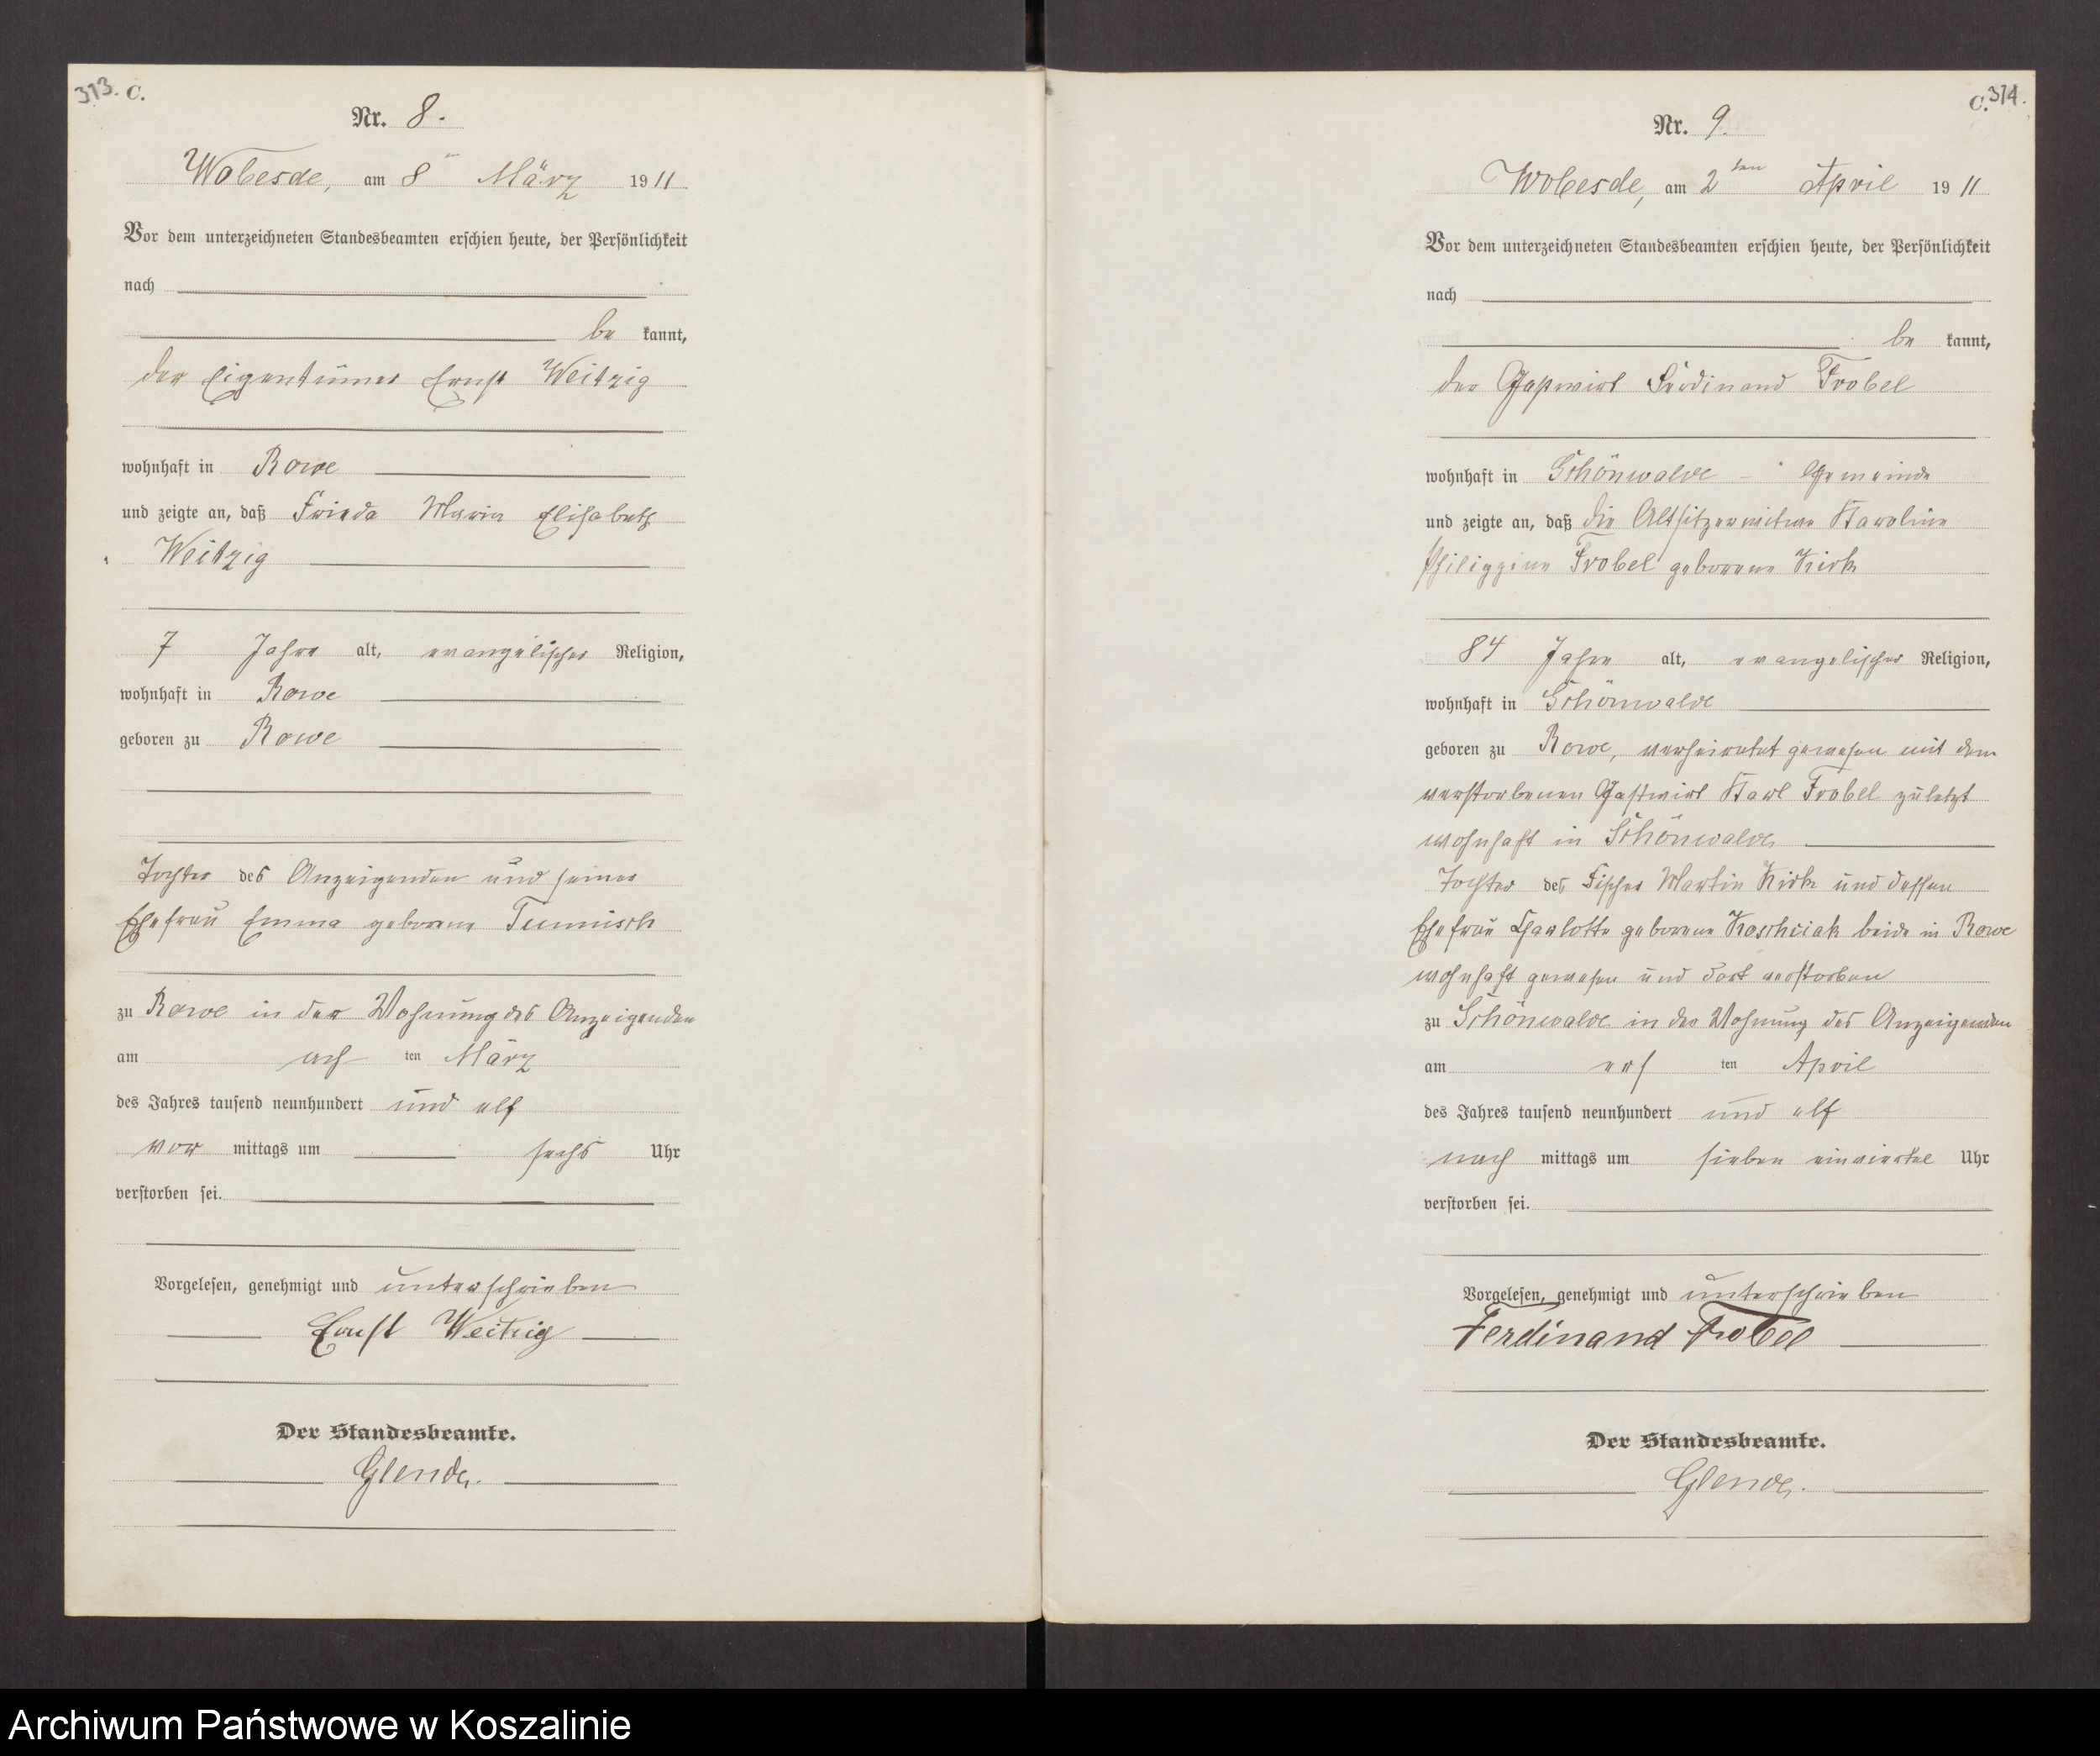 313. C.
Nr. 8.
Wobesde, am 8 März 1911
Vor dem unterzeichneten Standesbeamten erschien heute, der Persönlichkeit
nach
be kannt,
der Eigentümer Ernst Weitzig
wohnhaft in Rowe
und zeigte an, daß Frieda Marie Elisabeth
Weitzig
7 Jahre alt, evangelischer Religion,
wohnhaft in Rowe
geboren zu Rowe
Tochter des Anzeigenden und seiner
Ehefrau Emma geborene
zu Rowe in der Wohnung des Anzeigenden
am ach ten März
des Jahres tausend neunhundert und elf
vor mittags um sechs Uhr
verstorben sei.
Vorgelesen, genehmigt und unterschrieben
Ernst Weitzig
Der Standesbeamte.
Glende.
C. 314.
Nr. 9.
Wobesde, am 2ten April 1911
Vor dem unterzeichneten Standesbeamten erschien heute, der Persönlichkeit
nach
be kannt,
der Gastwirt Ferdinand Frobel
wohnhaft in Schönwalde - Gemeinde
und zeigte an, daß die Altsitzerwitwe Karoline
Philippine Frobel geborene Kirk
84 Jahre alt, evangelischer Religion,
wohnhaft in Schönwalde
geboren zu Rowe, verheiratet gewesen mit dem
verstorbenen Gastwirt Karl Frobel zuletzt
wohnhaft in Schönwalde
Tochter des Fischer Martin Kirk und dessen
Ehefrau Charlotte geborene Koschciak beide in Rowe
wohnhaft gewesen und dort verstorben
zu Schönwalde in der Wohnung des Anzeigenden
am ers ten April
des Jahres tausend neunhundert und elf
nach mittags um sieben einviertel Uhr
verstorben sei.
Vorgelesen, genehmigt und unterschrieben
Ferdinand Frobel
Der Standesbeamte.
Glende.
Archiwum Państwowe w Koszalinie